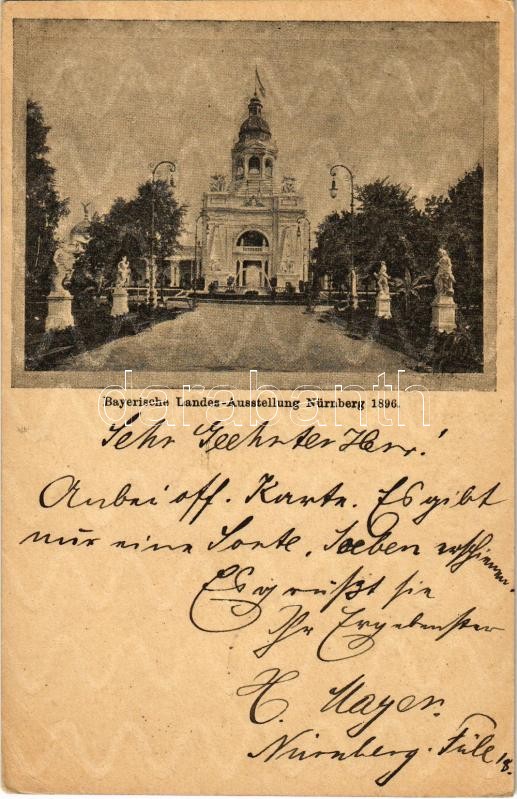 Bayerische Landes-Ausstellung Nürnberg 1896.
darabanth
Sehr Geehrter Herr!
Anbei off. Karte. Es gibt
nur eine Sorte. Soeben erschienen.
Es grüßt sie
Ihr Ergebenster
H. Mayer.
Nürnberg.